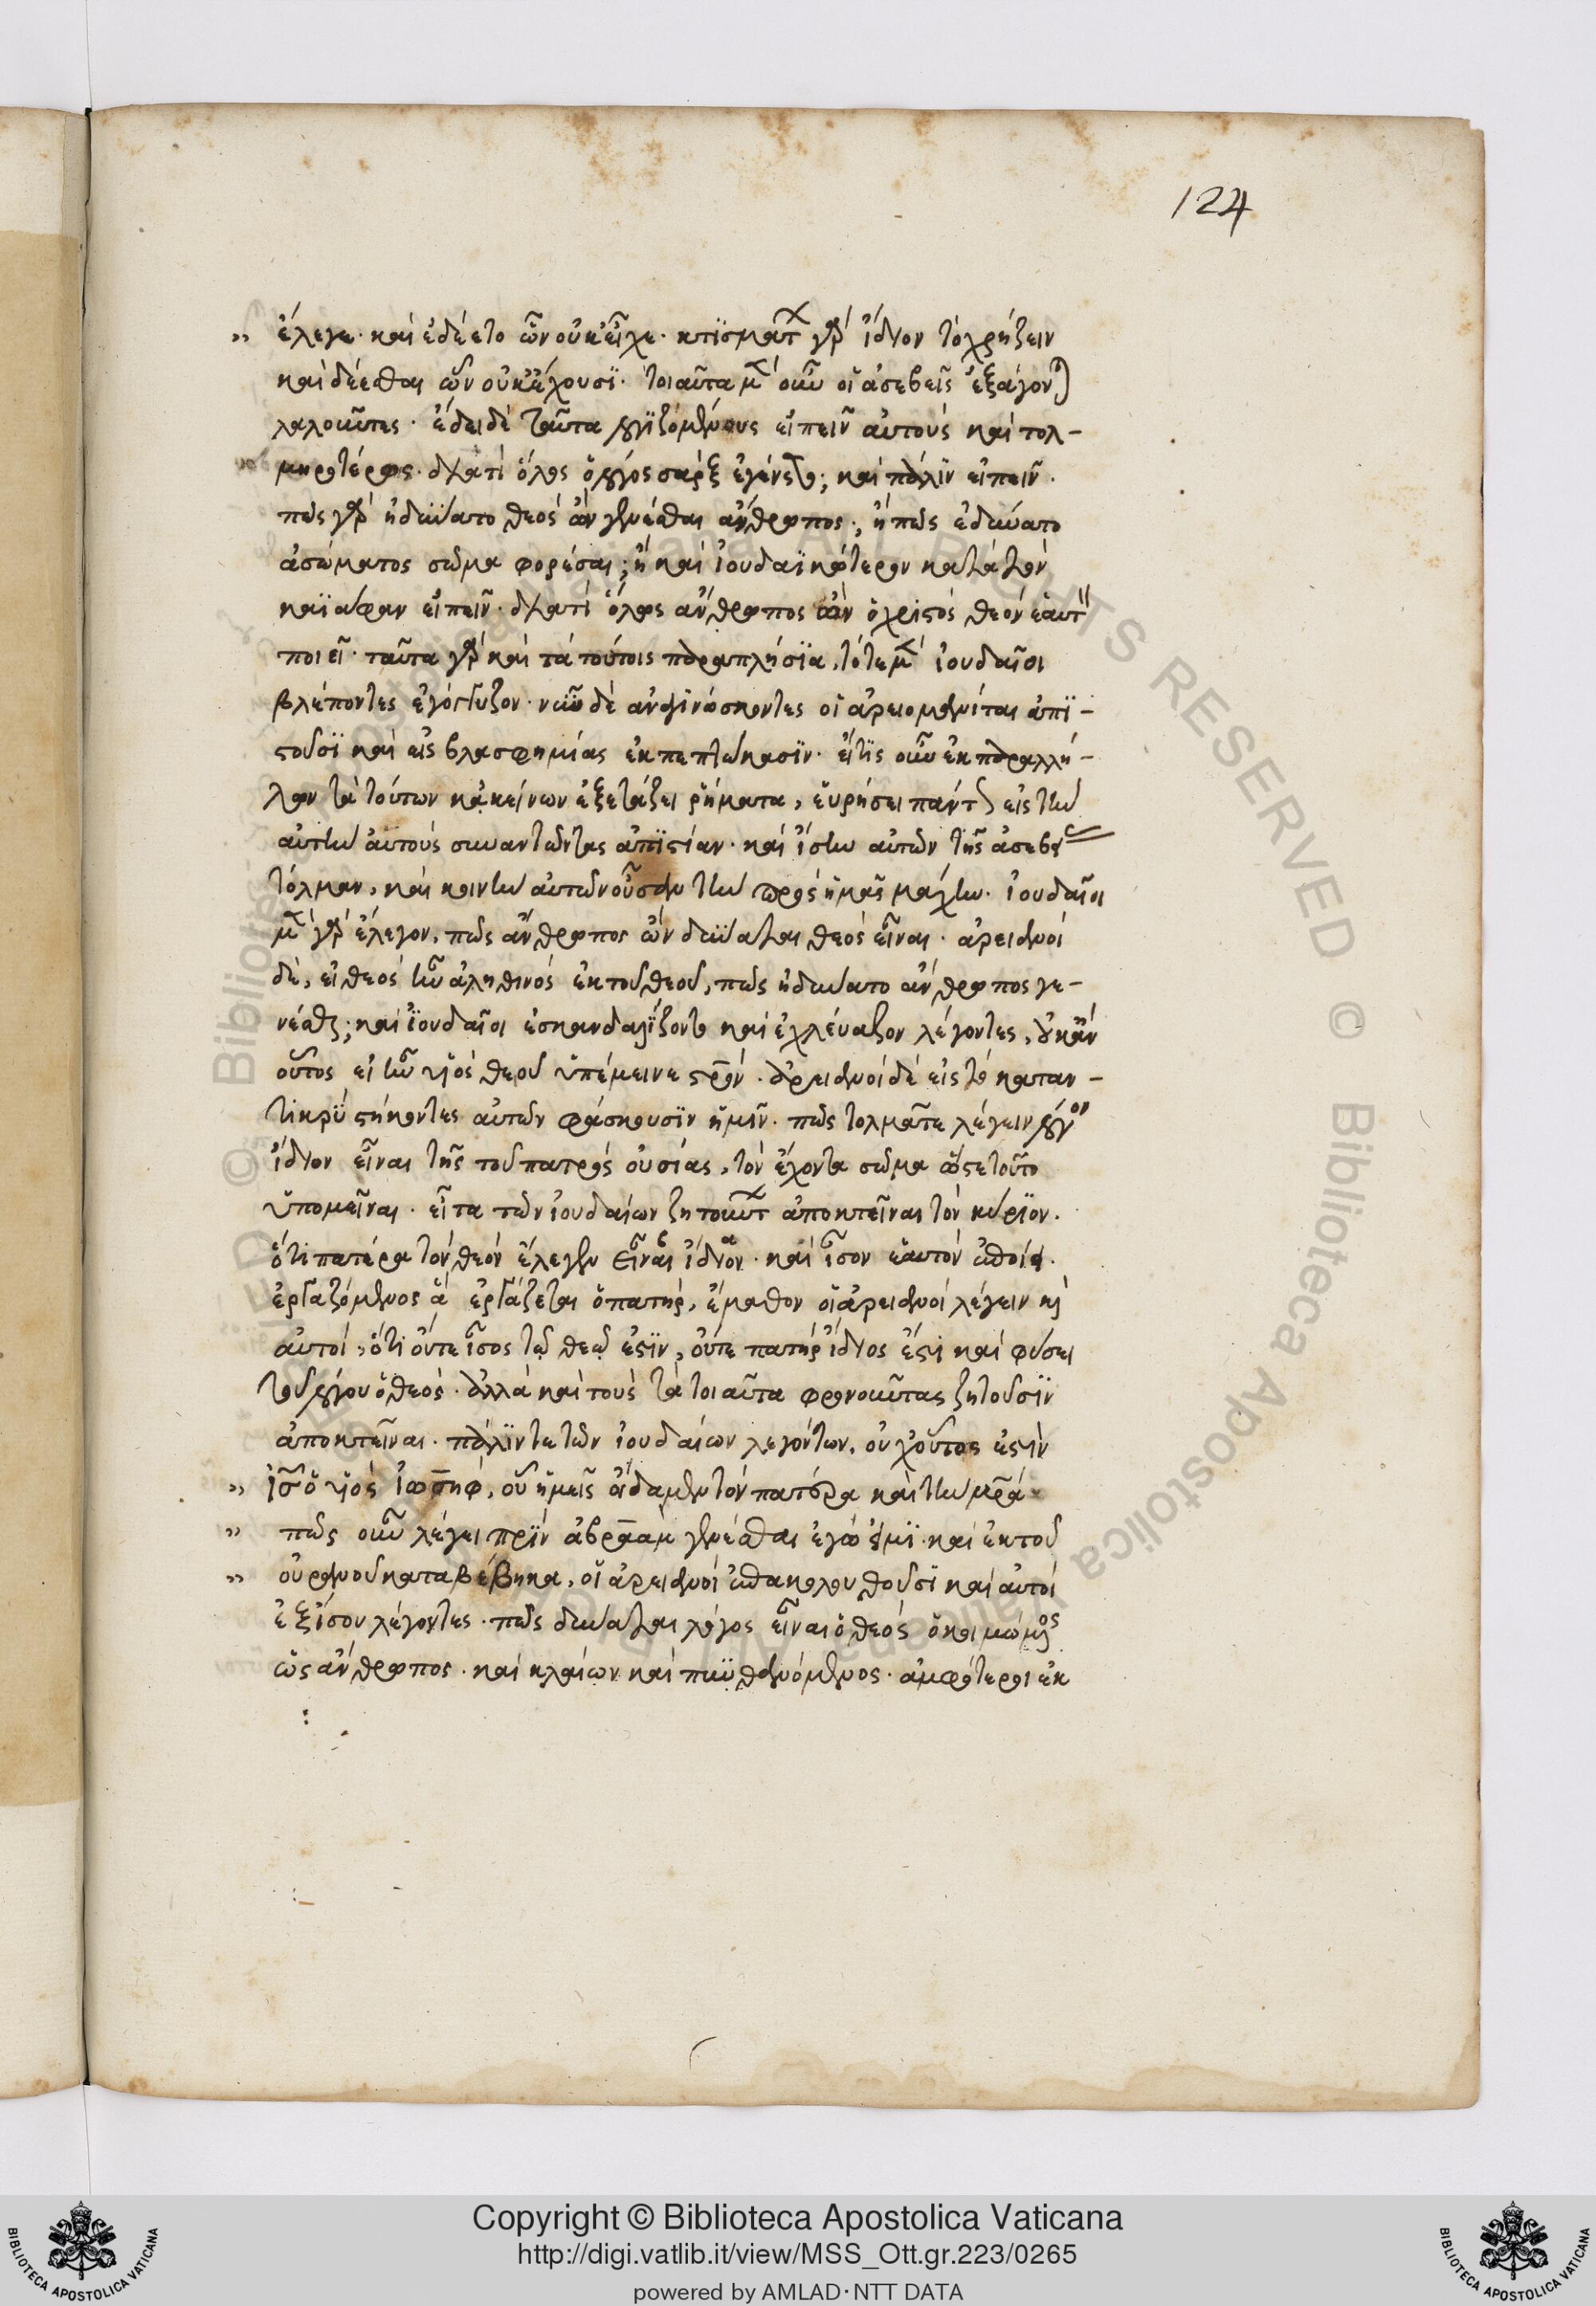 124
„ ἔλεγε· καὶ ἐδέετο ὧν οὐκ εἶχε· κτισμάτων γὰρ ἴδιον τὸ χρήζειν
καὶ δέεσθαι ὧν οὐκ ἔχουσι· τοιαῦτα μὲν οὖν οἱ ἀσεβεῖς ἐξάγονται
λαλοῦντες· ἔδει δὲ ταῦτα λογιζομένους εἰπεῖν αὐτοὺς καὶ τολ-
μηροτέρως· διατί ὅλως ὁ λόγος σὰρξ ἐγένετο; καὶ πάλιν εἰπεῖν·
πῶς γὰρ ἠδύνατο θεὸς ὢν γενέσθαι ἄνθρωπος; ἢ πῶς ἐδύνατο
ἀσώματος σῶμα φορέσαι; ἢ καὶ ἰουδαϊκώτερον κατὰ τὸν
καϊάφαν εἰπεῖν· διατί ὅλως ἄνθρωπος ὢν ὁ χριστὸς θεὸν ἑαυτὸν
ποιεῖ· ταῦτα γὰρ καὶ τὰ τούτοις παραπλήσια, τότε μὲν ἰουδαῖοι
βλέποντες ἐγόγγυζον· νῦν δὲ ἀναγινώσκοντες οἱ ἀρειομανῖται ἀπι-
στοῦσι καὶ εἰς βλασφημίας ἐκπεπτώκασιν· εἴ τις οὖν ἐκ παραλλή-
λου τὰ τούτων κἀκείνων ἐξετάζει ῥήματα, εὑρήσει πάντως εἰς τὴν
αὐτὴν αὐτοὺς συναντῶντας ἀπιστίαν· καὶ ἴσην αὐτῶν τῆς ἀσεβείας
τόλμαν, καὶ κοινὴν αὐτῶν οὖσαν τὴν πρὸς ἡμᾶς μάχην. ἰουδαῖοι
μὲν γὰρ ἔλεγον, πῶς ἄνθρωπος ὢν δύναται θεὸς εἶναι· ἀρειανοὶ
δὲ, εἰ θεὸς ἦν ἀληθινὸς ἐκ τοῦ θεοῦ, πῶς ἠδύνατο ἄνθρωπος γε-
νέσθαι; καὶ ἰουδαῖοι ἐσκανδαλίζοντο καὶ ἐχλεύαζον λέγοντες, οὐκ ἂν
οὗτος εἰ ἦν υἱὸς θεοῦ ὑπέμεινε σρὸν· ἀρειανοὶ δὲ εἰς τὸ καταν-
τικρὺ στήκοντες αὐτῶν φάσκουσιν ἡμῖν· πῶς τολμᾶτε λέγειν λόγον
ἴδιον εἶναι τῆς τοῦ πατρὸς οὐσίας, τὸν ἔχοντα σῶμα ὥστε τοῦτο
ὑπομεῖναι· εἶτα τῶν ἰουδαίων ζητούντων ἀποκτεῖναι τὸν κύριον·
ὅτι πατέρα τὸν θεὸν ἔλεγεν εἶναι ἴδιον· καὶ ἴσον ἑαυτὸν ἐποίει·
ἐργαζόμενος ἃ ἐργάζεται ὁ πατὴρ, ἔμαθον οἱ ἀρειανοὶ λέγειν καὶ
αὐτοὶ, ὅτι οὔτε ἴσος τῷ θεῷ ἐστιν, οὔτε πατὴρ ἴδιος ἐστὶ καὶ φύσει
τοῦ λόγου ὁ θεὸς· ἀλλὰ καὶ τοὺς τὰ τοιαῦτα φρονοῦντας ζητοῦσιν
ἀποκτεῖναι· πάλιν τε τῶν ἰουδαίων λεγόντων, οὐχ οὗτος ἐστὶν
„ ἰς ὁ υἱὸς ἰωσὴφ, οὗ ἡμεῖς οἴδαμεν τὸν πατέρα καὶ τὴν μρα·
„ πῶς οὖν λέγει πρὶν ἀβραὰμ γενέσθαι ἐγώ εἰμι· καὶ ἐκ τοῦ
„ οὐρανοῦ καταβέβηκα, οἱ ἀρειανοὶ ἐπακολουθοῦσι καὶ αὐτοὶ
ἐξίσου λέγοντες· πῶς δύναται λόγος εἶναι ὁ θεὸς ὁ κοιμώμενος
ὡς ἄνθρωπος· καὶ κλαίων καὶ πυνθανόμενος· ἀμφότεροι ἐκ
© Biblioteca Apostolica Vaticana ALL RIGHTS RESERVED
Copyright © Biblioteca Apostolica Vaticana
http://digi.vatlib.it/view/MSS_Ott.gr.223/0265
powered by AMLAD·NTT DATA
BIBLIOTECA APOSTOLICA VATICANA
BIBLIOTECA APOSTOLICA VATICANA